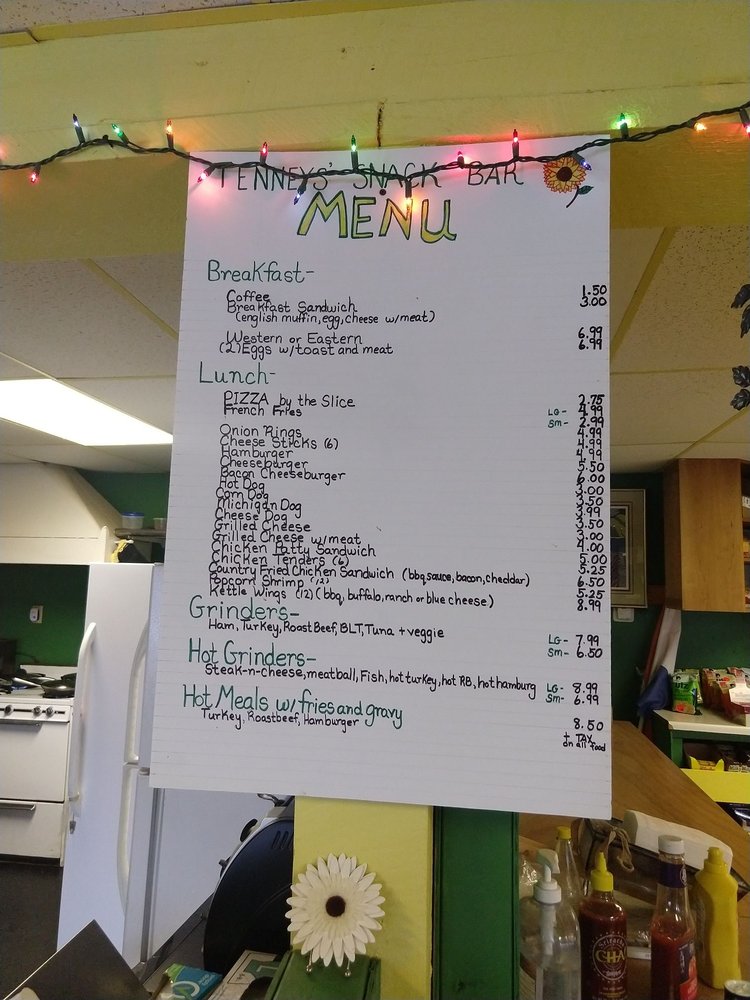 TENNEYS' SNACK BAR
MENU
Breakfast-
Coffee 1.50
Breakfast Sandwich 3.00
(english muffin, egg, cheese w/meat)
Western or Eastern 6.99
(2) Eggs w/toast and meat 6.99
Lunch-
PIZZA by the Slice 2.75
French Fries LG- 4.99
SM- 2.99
Onion Rings 4.99
Cheese Sticks (6) 4.99
Hamburger 4.99
Cheeseburger 5.50
Bacon Cheeseburger 6.00
Hot Dog 3.00
Corn Dog 3.50
Michigan Dog 3.99
Cheese Dog 3.50
Grilled Cheese 3.00
Grilled Cheese w/meat 4.00
Chicken Patty Sandwich 5.00
Chicken Tenders (6) 5.25
Country Fried Chicken Sandwich (bbq sauce, bacon, cheddar) 6.50
Popcorn Shrimp (12) 5.25
Kettle Wings (12) (bbq, buffalo, ranch or blue cheese) 8.99
Grinders-
Ham, Turkey, Roast Beef, BLT, Tuna + veggie LG- 7.99
SM- 6.50
Hot Grinders-
Steak-n-cheese, meatball, Fish, hot turkey, hot RB, hot hamburg LG- 8.99
SM- 6.99
Hot Meals w/ fries and gravy
Turkey, Roastbeef, Hamburger 8.50
+ TAX
on all food
Sriracha
CHA